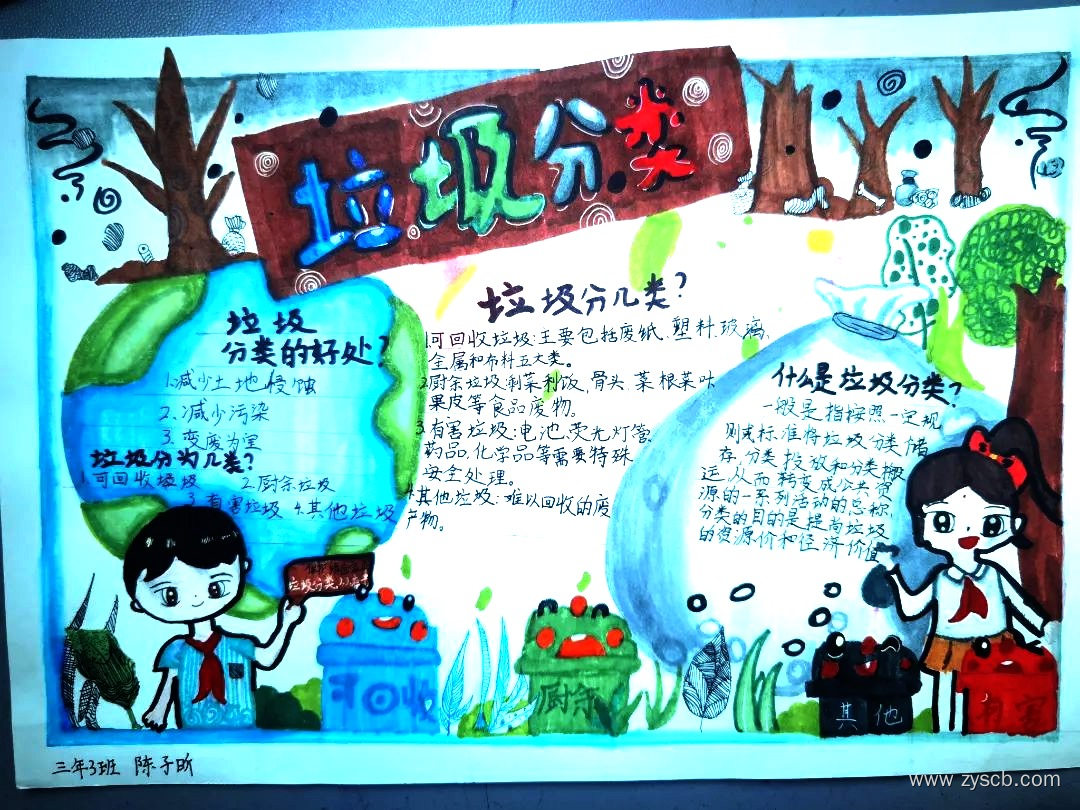 垃圾分类
垃圾
分类的好处?
1.减少土地侵蚀
2.减少污染
3.变废为宝
垃圾分为几类?
1.可回收垃圾 2.厨余垃圾
3.有害垃圾 4.其他垃圾
垃圾分几类?
1.可回收垃圾:主要包括废纸、塑料、玻璃、
金属和布料五大类。
2.厨余垃圾:剩菜剩饭、骨头、菜根菜叶
果皮等食品废物。
3.有害垃圾:电池、荧光灯管、
药品、化学品等需要特殊
安全处理。
4.其他垃圾:难以回收的废
产物。
什么是垃圾分类?
一般是指按照一定规
则或标准将垃圾分类储
存、分类投放和分类搬
运,从而转变成公共资
源的一系列活动的总称。
分类的目的是提高垃圾
的资源价和经济价值
垃圾分类,从
可回收
厨余
其他
有害
三年3班 陈子昕
www.zyscb.com